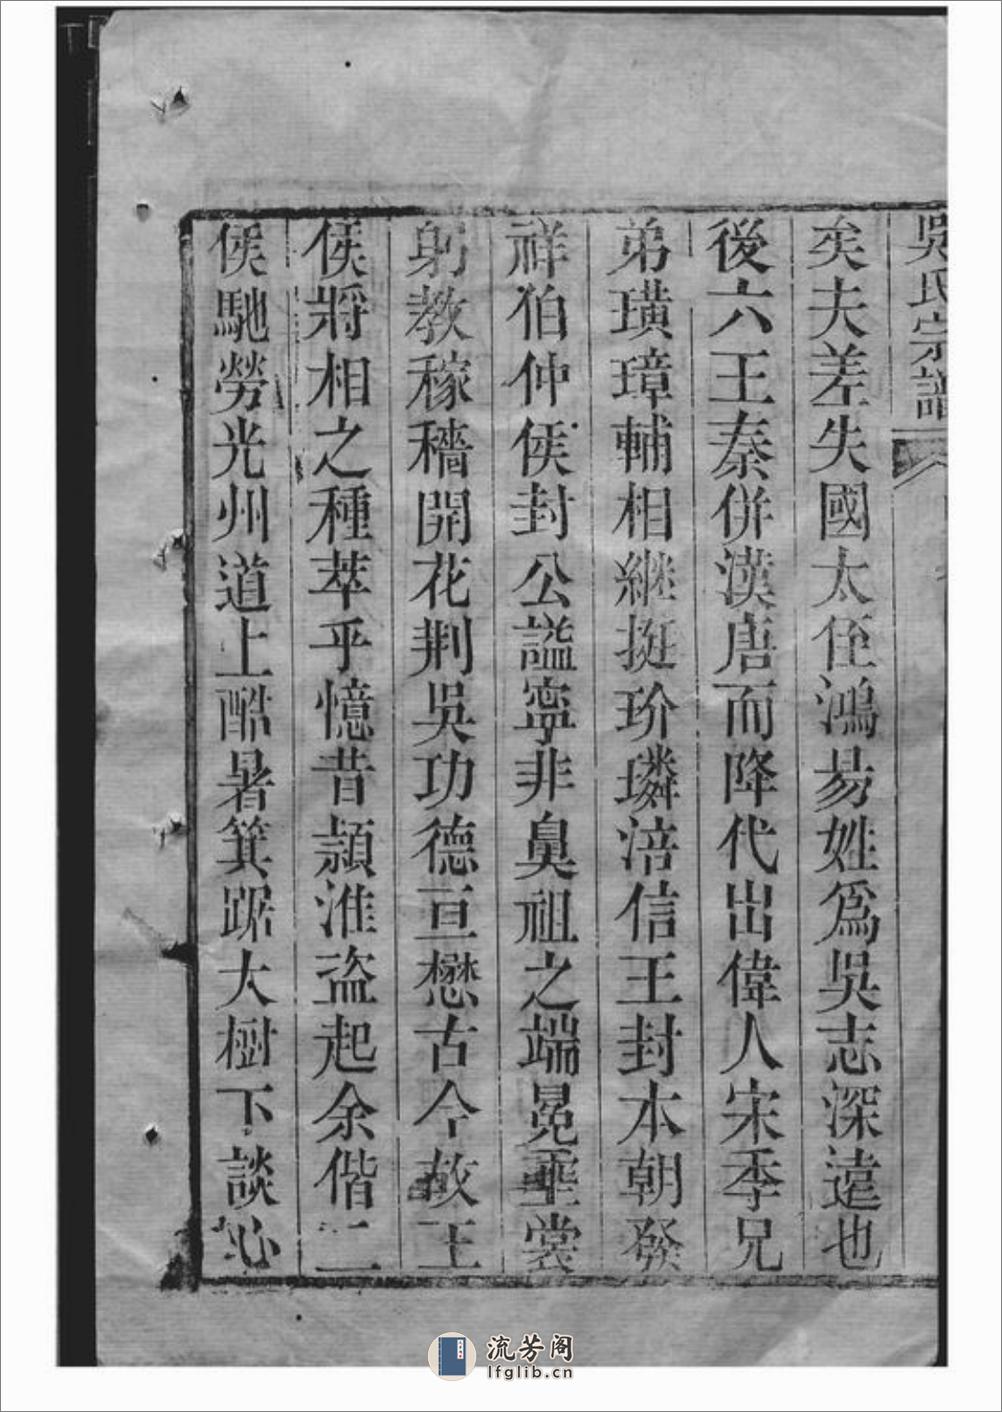 吳氏宗譜
矣夫差失國太侄鴻易姓爲吳志深遠也
後六王秦併漢唐而降代出偉人宋季兄
弟璜璋輔相継挺玠璘涪信王封本朝發
祥伯仲侯封公謚寧非鼻祖之端冕垂裳
躬教稼穡開花荆吳功德亘懋古今故王
侯將相之種萃乎憶昔頴淮盗起余偕二
侯馳勞光州道上酷暑箕踞大樹下談心
流芳阁
lfglib.cn